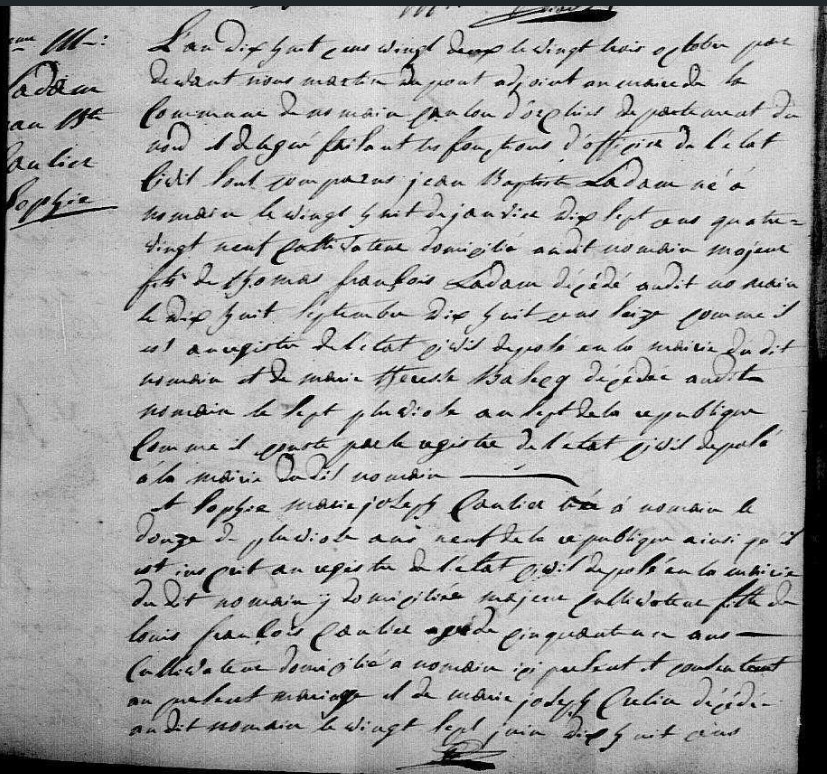 Ladam
Jean Bte
Caulier
Sophie
L'an dix huit cens vingt deux le vingt trois octobre par
devant nous martin du pont adjoint au maire de la
Commune de nomain canton d'orchies departement du
nord et delegué faisant les fonctions d'officier de l'etat
Civil sont comparus jean Baptiste Ladam né à
nomain le vingt huit de janvier dix sept cens quatre=
vingt neuf Cultivateur domicilié audit nomain majeur
fils de thomas françois Ladam décédé audit nomain
le dix huit septembre dix huit cens seize comme il
est au registre de l'etat civil deposé en la mairie du dit
nomain et de marie therese décédée audit
nomain le sept pluviose an sept de la republique
Comme il conste par le registre de l'etat civil deposé
à la mairie dudit nomain
et Sophie marie joseph Caulier née à nomain le
douze de pluviose ans neuf de la republique ainsi qu'il
est inscrit au registre de l'etat civil deposé en la mairie
du dit nomain y domiciliée majeure Cultivateur fille de
louis françois Caulier agé de cinquante ans
Cultivateur domicilié a nomain ici present et consentant
au present mariage et de marie joseph décédée
audit nomain le vingt sept juin dix huit cens